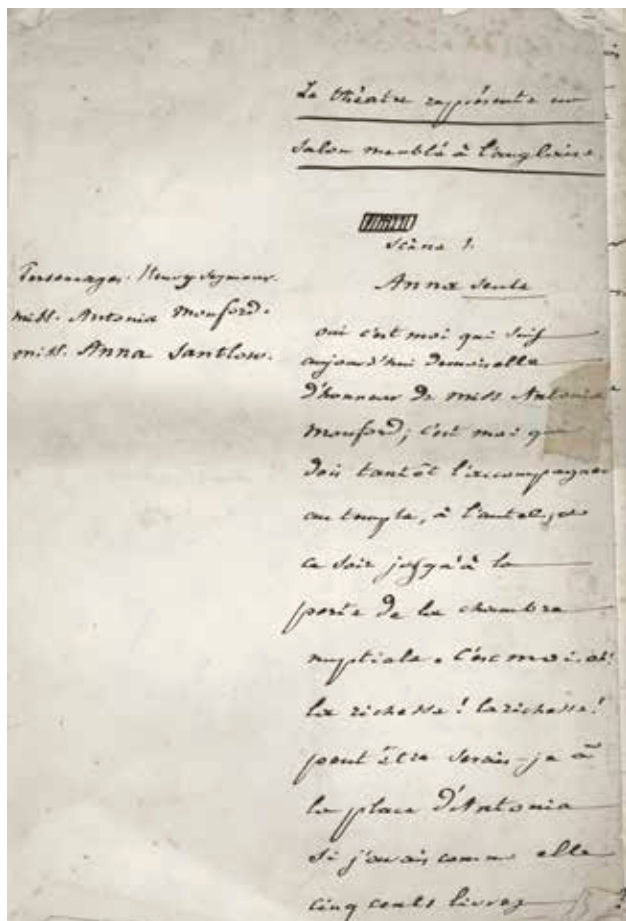 Le théatre représente un
salon meublé à l'anglaise.
Scène 1.
Anna seule
Personnages. Henry Seymour.
miss. Antonia Monford.
miss. Anna Santlow.
oui c'est moi qui suis
aujourd'hui demoiselle
d'honneur de miss Antonia
Monford; c'est moi qui
dois tantôt l'accompagner
au temple, à l'autel, et
ce soir jusqu'à la
porte de la chambre
nuptiale. C'est moi. oh!
la richesse! la richesse!
peut être serais-je à
la place d'Antonia
si j'avais comme elle
cinq cents livres